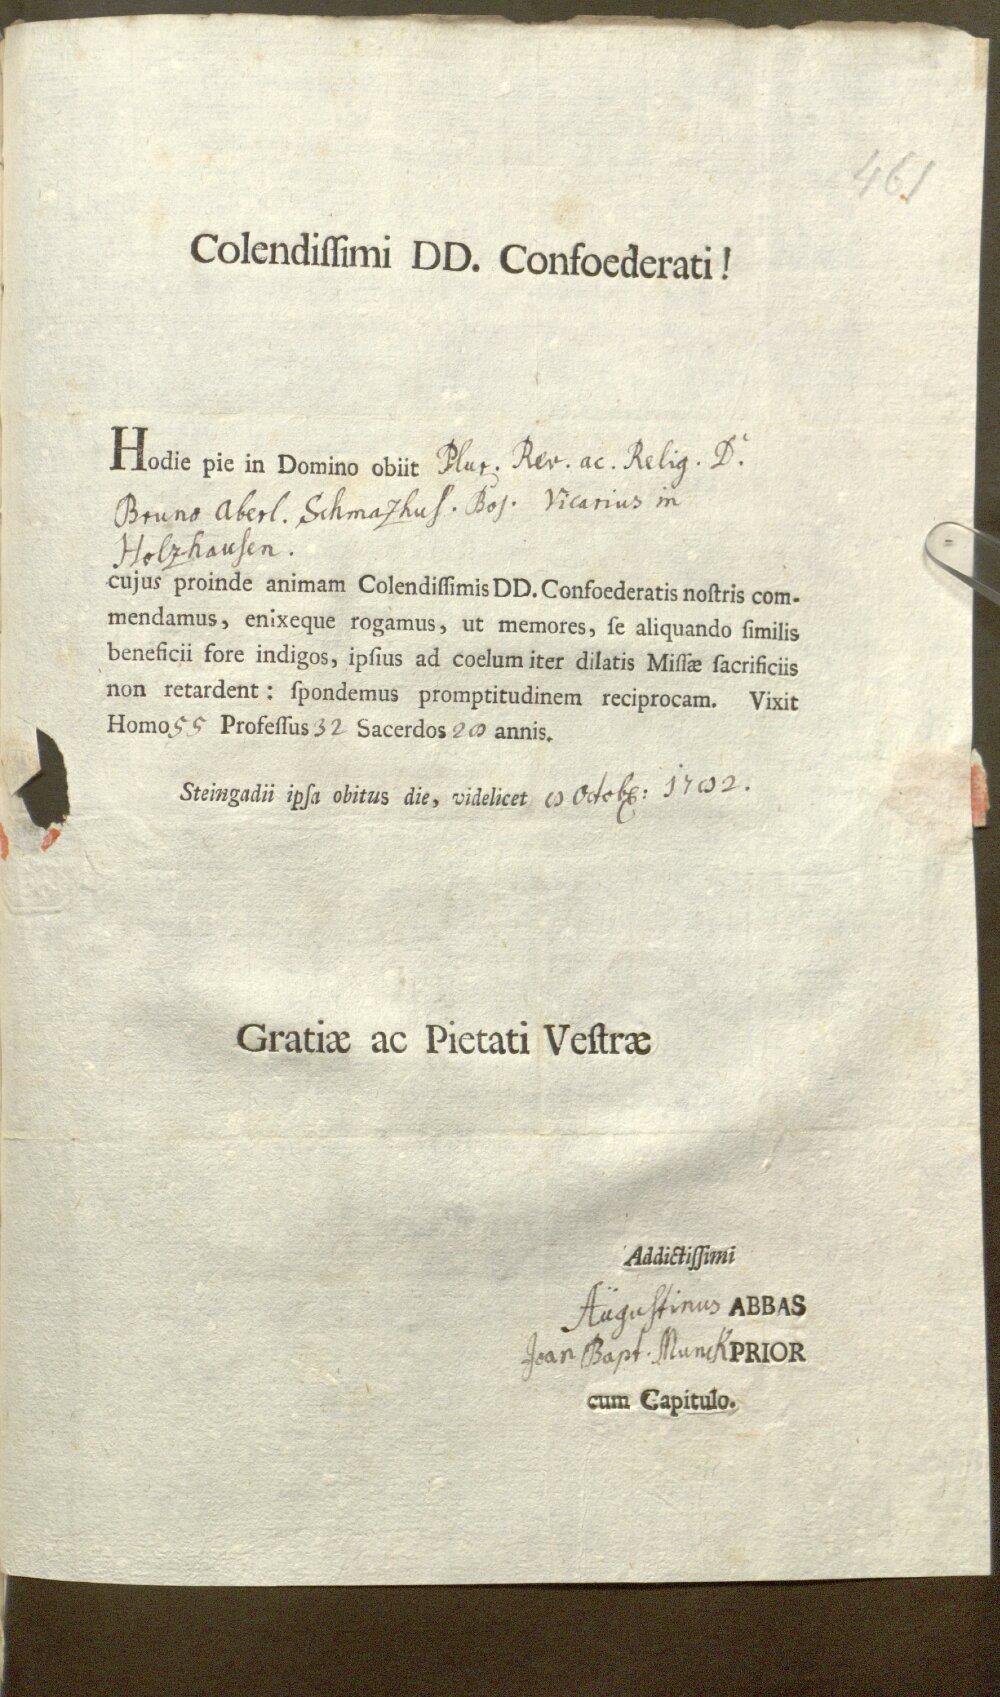 461
Colendiſſimi DD. Confoederati!
Hodie pie in Domino obiit Plur. Rev. ac. Relig. D.
Bruno Aberl. Schmazhuſ. Boj. Vicarius in
Holzhauſen.
cujus proinde animam Colendiſſimis DD. Confoederatis noſtris com-
mendamus, enixeque rogamus, ut memores, ſe aliquando ſimilis
beneficii fore indigos, ipſius ad coelum iter dilatis Miſſæ ſacrificiis
non retardent: ſpondemus promptitudinem reciprocam. Vixit
Homo 55 Profeſſus 32 Sacerdos 29 annis.
Steingadii ipſa obitus die, videlicet 9 Octob: 1792.
Gratiæ ac Pietati Veſtræ
Addictiſſimi
Auguſtinus ABBAS
Joan Bapt. Munck PRIOR
cum Capitulo.